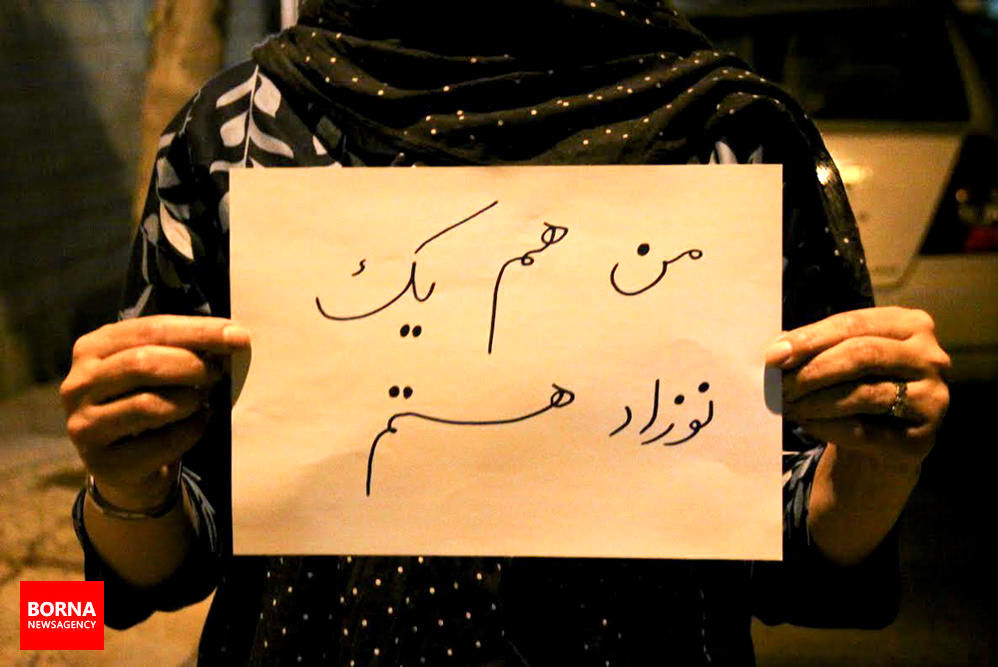 من هم یک
نوزاد هستم
BORNA
NEWSAGENCY